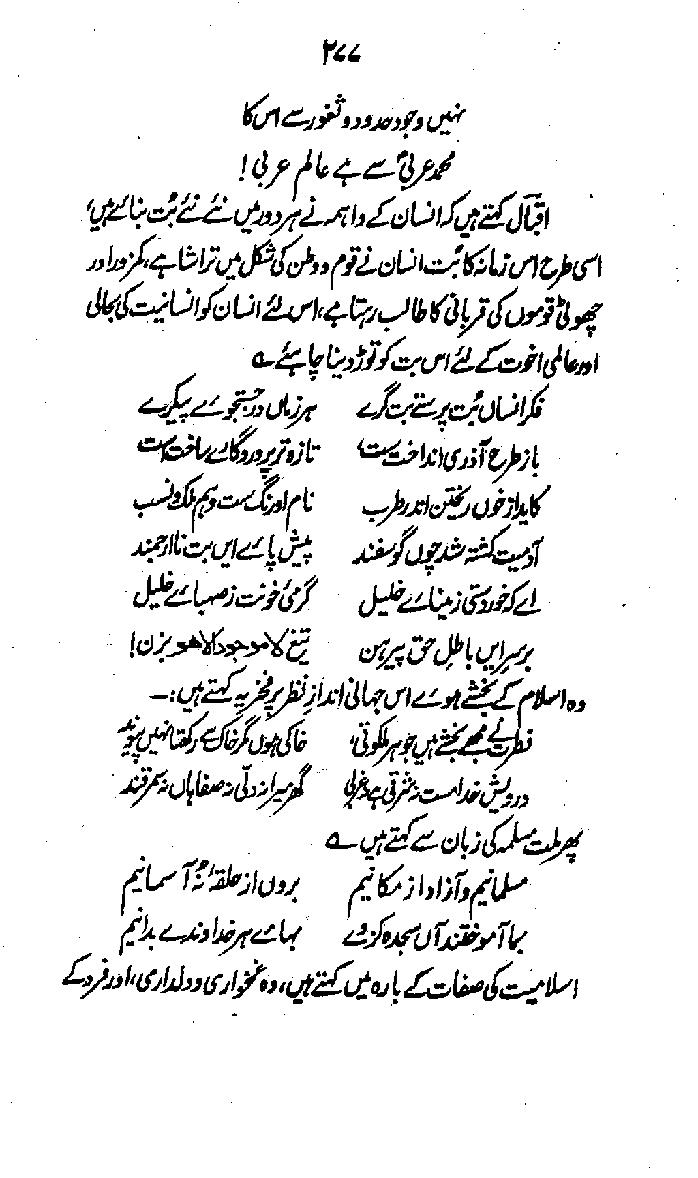 ۲۷۷
نہیں وجود حدود و ثغور سے اس کا
محمد عربیؐ سے ہے عالم عربی!
اقبالؒ کہتے ہیں کہ انسان کے واہمہ نے ہر دور میں نئے نئے بُت بنائے ہیں،
اسی طرح اس زمانہ کا بُت انسان نے قوم و وطن کی شکل میں تراشا ہے، کمزور اور
چھوٹی قوموں کی قربانی کا طالب رہتا ہے، اس لئے انسان کو انسانیت کی بحالی
اور عالمی اخوت کے لئے اس بت کو توڑ دینا چاہئے ؎
فکر انساں بُت پرستے بت گرے ہر زماں در جستجوے پیکرے
باز طرح آذری انداخت ست تازہ تر پروردگارے ساخت ست
کاید از خوں ریختن اندر طرب نام او رنگ ست و ہم ملک و نسب
آدمیت کشتہ شد چوں گوسفند پیش پاے ایں بت ناارجمند
اے کہ خوردستی ز میناے خلیل گرمیٔ خونت ز صہباے خلیل
بر سر ایں باطل حق پیرہن تیغ لا موجود الا ھو بزن!
وہ اسلام کے بخشے ہوے اس جہانی انداز نظر پر فخریہ کہتے ہیں:۔
فطرت نے مجھے بخشے ہیں جوہر ملکوتی، خاکی ہوں مگر خاک سے رکھتا نہیں پیوند
درویش خدامست نہ شرقی ہے نہ غربی گھر میرا نہ دلّی نہ صفاہاں نہ سمرقند
پھر ملت مسلمہ کی زبان سے کہتے ہیں ؎
مسلمانیم و آزاد از مکانیم بروں از حلقۂ نُہ آسمانیم
بما آموختند آں سجدہ کز وے بہاے ہر خداوندے بدانیم
اسلامیت کی صفات کے بارہ میں کہتے ہیں، وہ غمخواری و دلداری، اور فرد کے